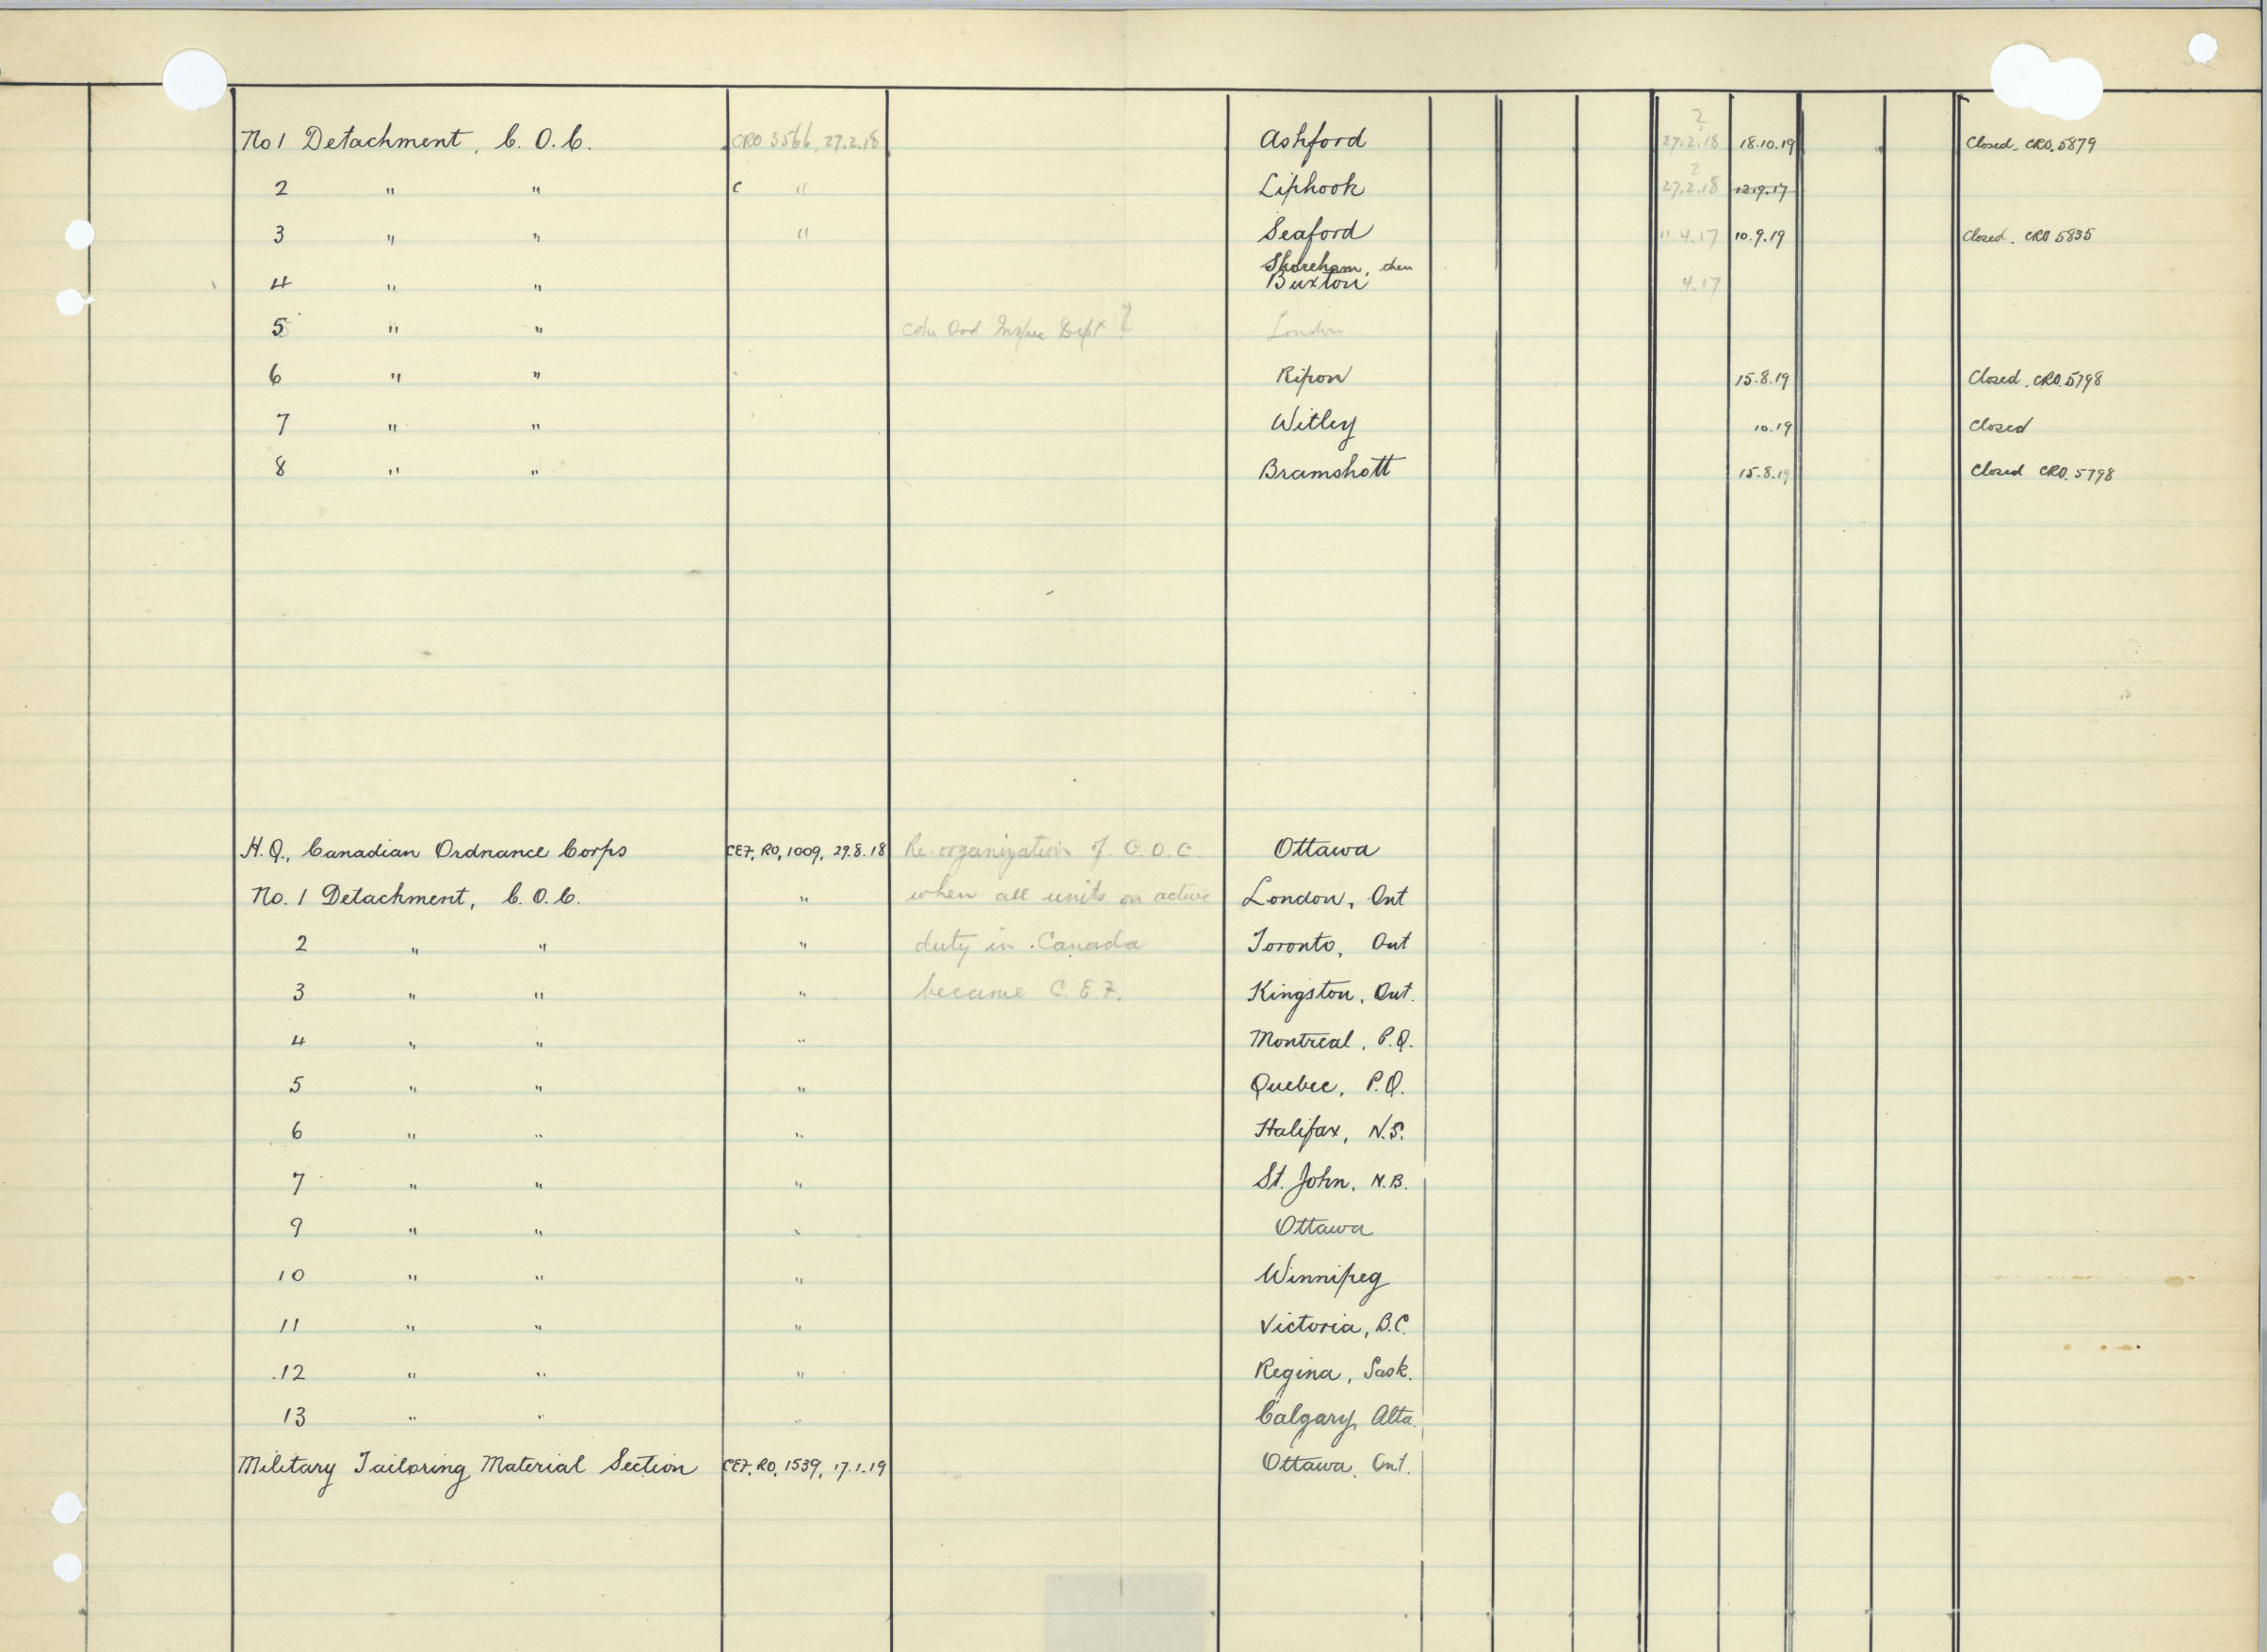 No 1 Detachment, C. O. C. CRO 3566, 27.2.18 Ashford ? 27.2.18 18.10.19 Closed. CRO. 5879
2 " " C " Liphook ? 27.2.18 12.9.17
3 " " " Seaford 11.4.17 10.9.19 Closed. CRO 5835
4 " " Shoreham, then Buxton 4.17
5 " " Cdn Ord Inspec Dept ? London
6 " " Ripon 15.8.19 Closed. CRO. 5798
7 " " Witley 10.19 Closed
8 " " Bramshott 15.8.19 Closed CRO. 5798
H.Q., Canadian Ordnance Corps CEF, RO, 1009, 29.8.18 Re-organization of C.O.C. Ottawa
No. 1 Detachment, C. O. C. " when all units on active London, Ont
2 " " " duty in Canada Toronto, Ont
3 " " " became C.E.F. Kingston, Ont.
4 " " " Montreal, P.Q.
5 " " " Quebec, P.Q.
6 " " " Halifax, N.S.
7 " " " St. John, N.B.
9 " " " Ottawa
10 " " " Winnipeg
11 " " " Victoria, B.C.
12 " " " Regina, Sask.
13 " " " Calgary, Alta.
Military Tailoring Material Section CEF, RO, 1539, 17.1.19 Ottawa, Ont.